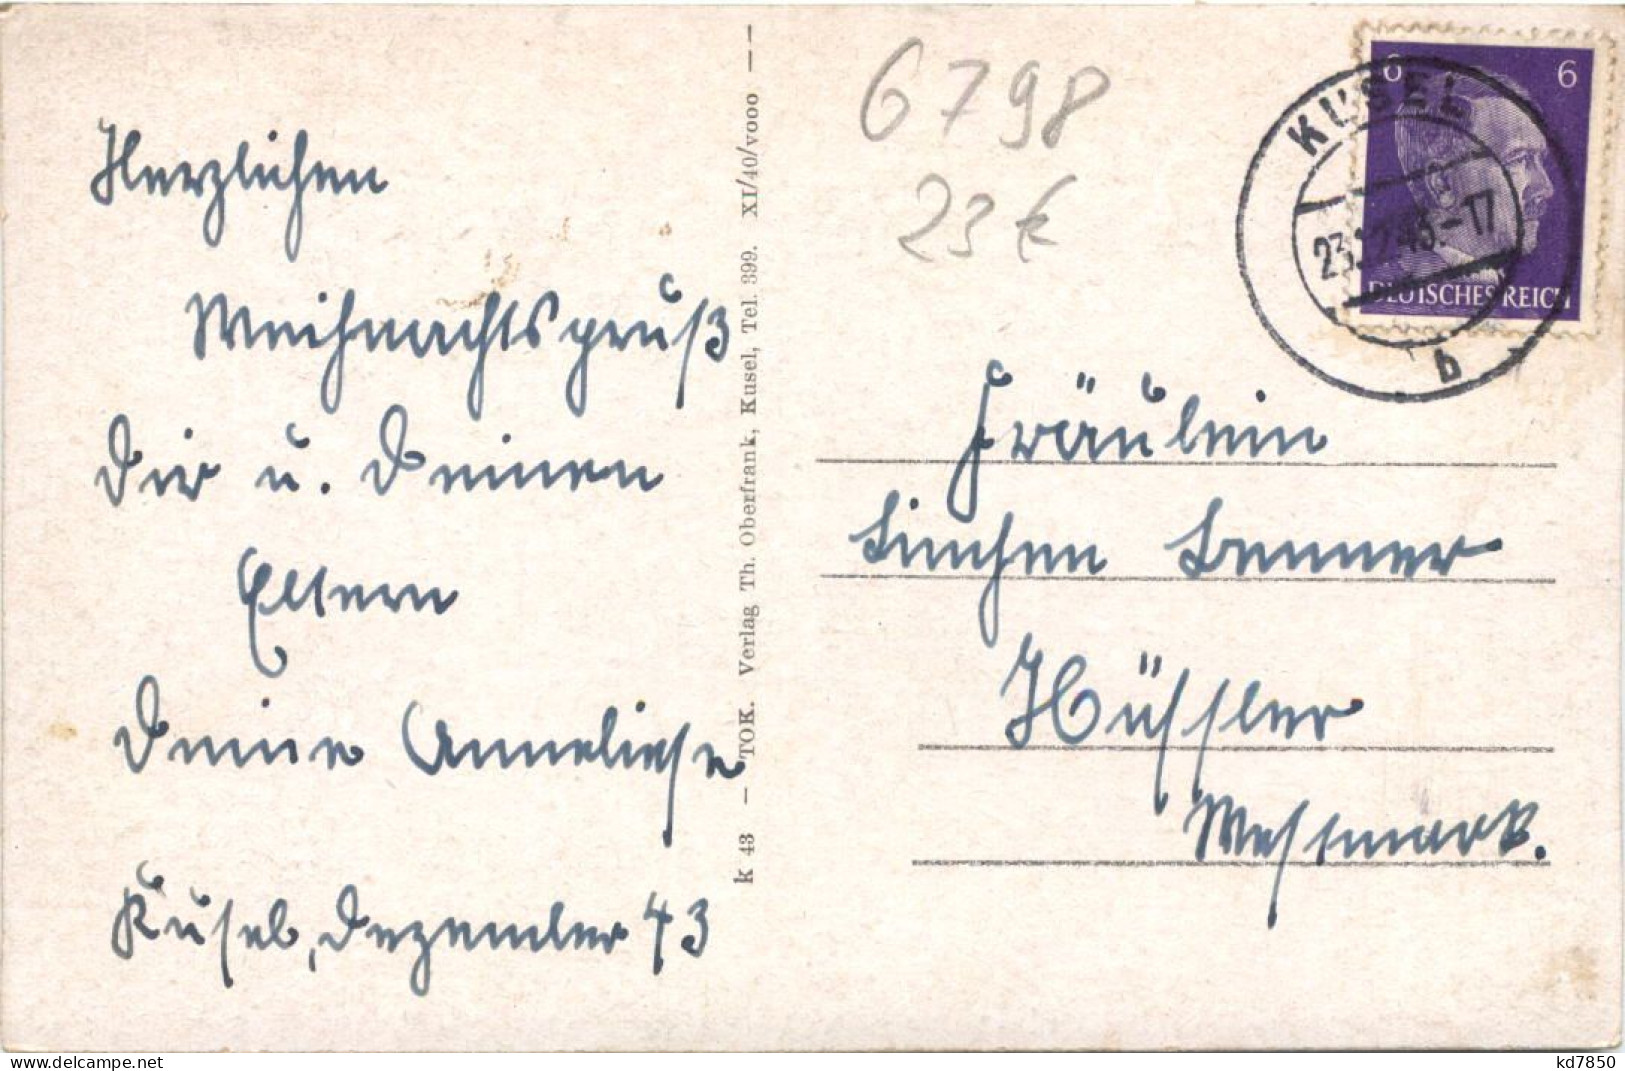 Herzlichen
Weihnachtsgruß
Dir u. Deinen
Eltern
Deine Anneliese
Kusel, Dezember 43
k 43 — TOK. Verlag Th. Oberfrank, Kusel, Tel. 399. XI/40/vooo — —
6798
23 €
6 6
DEUTSCHES REICH
KUSEL
23.12.43.-17
b
Fräulein
Linchen Benner
Hüffler
Westmark.
delcampe.net
kd7850